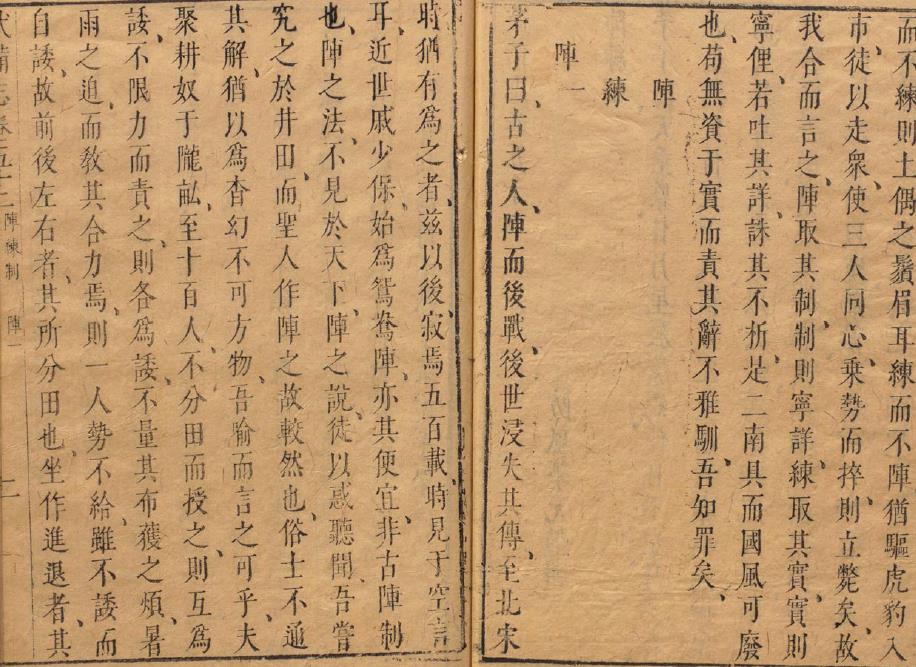 而不練則土偶之鬚眉耳練而不陣猶驅虎豹入
市徒以走衆使三人同心乗勢而捽則立斃矣故
我合而言之陣取其制制則寧詳練取其實實則
寧俚若吐其詳誅其不析是二南具而國風可廢
也苟無資于實而責其辭不雅馴吾知罪矣
陣
練
陣一
茅子曰古之人陣而後戰後世浸失其傳至北宋
時猶有爲之者兹以後寂焉五百載時見于空言
耳近世戚少保始爲鴛鴦陣亦其便宜非古陣制
也陣之法不見於天下陣之說徒以惑聽聞吾嘗
究之於井田而聖人作陣之故較然也俗士不通
其解猶以爲杳幻不可方物吾喻而言之可乎夫
聚耕奴于隴畝至十百人不分田而授之則互爲
諉不限力而責之則各爲諉不量其布穫之煩暑
雨之追而教其合力焉則一人勢不給雖不諉而
自諉故前後左右者其所分田也坐作進退者其
武備志卷五十二 陣練制 陣一